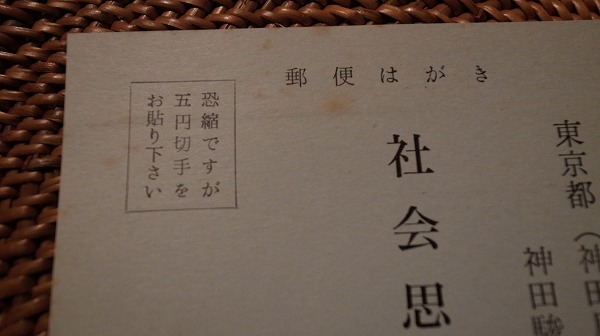 郵便はがき
東京都(神田
神田駿
社会思
恐縮ですが
五円切手を
お貼り下さい